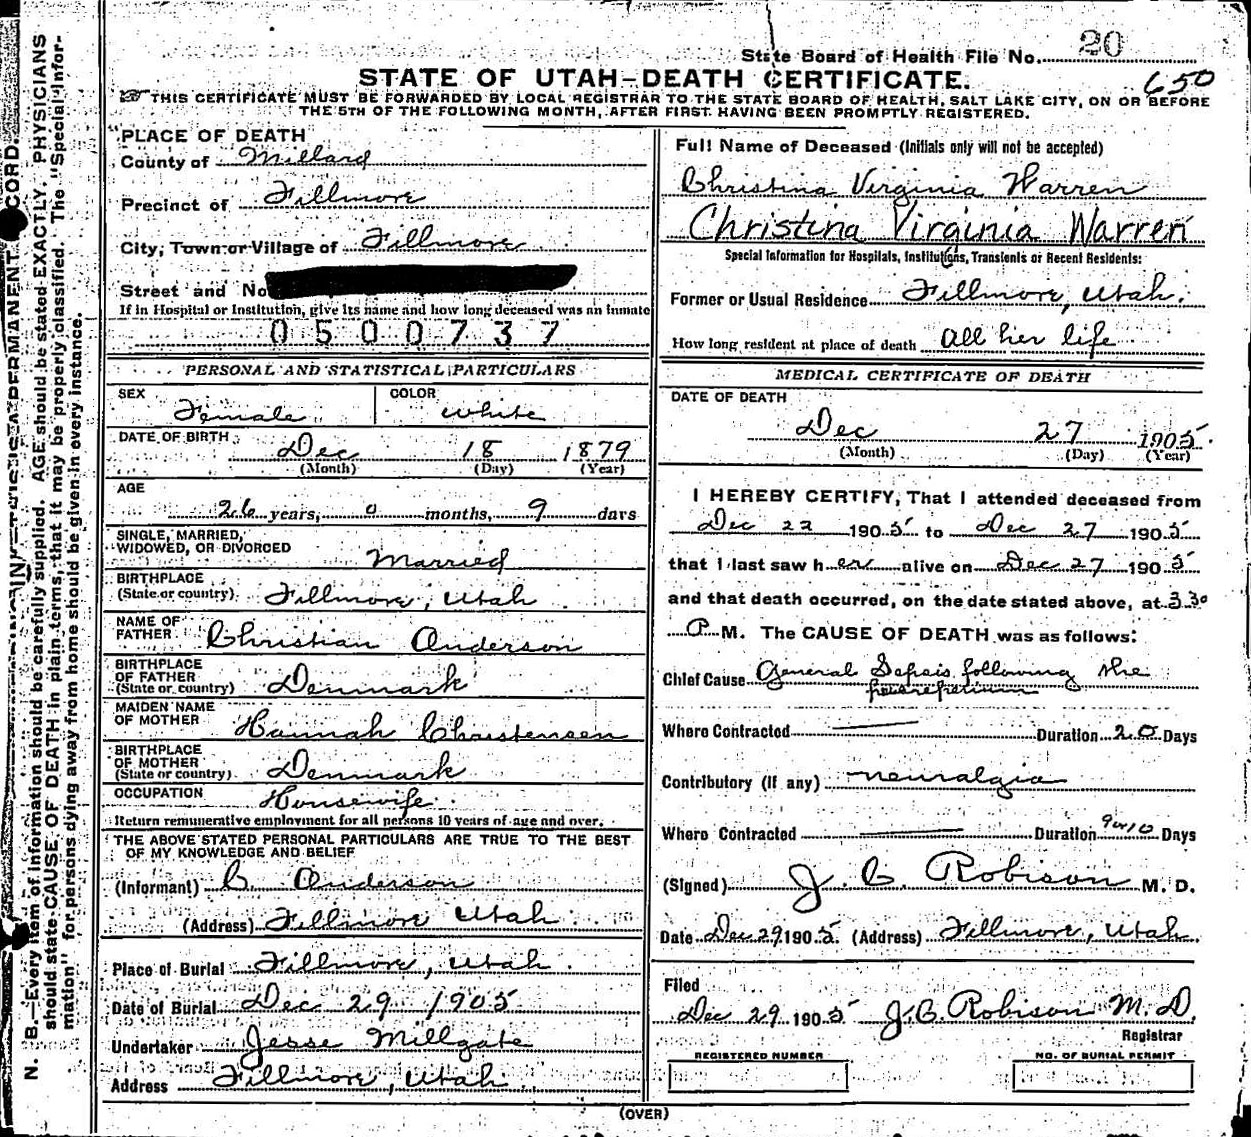 State Board of Health File No. 20
650
STATE OF UTAH-DEATH CERTIFICATE.
THIS CERTIFICATE MUST BE FORWARDED BY LOCAL REGISTRAR TO THE STATE BOARD OF HEALTH, SALT LAKE CITY, ON OR BEFORE
THE 5TH OF THE FOLLOWING MONTH, AFTER FIRST HAVING BEEN PROMPTLY REGISTERED.
PLACE OF DEATH
County of Millard
Precinct of Fillmore
City, Town or Village of Fillmore
Street and No
If in Hospital or Institution, give its name and how long deceased was an inmate
0500737
PERSONAL AND STATISTICAL PARTICULARS
SEX Female COLOR white
DATE OF BIRTH Dec 18 1879
(Month) (Day) (Year)
AGE
26 years, 0 months, 9 days
SINGLE, MARRIED,
WIDOWED, OR DIVORCED Married
BIRTHPLACE
(State or country) Fillmore, Utah
NAME OF
FATHER Christian Anderson
BIRTHPLACE
OF FATHER
(State or country) Denmark
MAIDEN NAME
OF MOTHER Hannah Christensen
BIRTHPLACE
OF MOTHER
(State or country) Denmark
OCCUPATION Housewife
Return remunerative employment for all persons 10 years of age and over.
THE ABOVE STATED PERSONAL PARTICULARS ARE TRUE TO THE BEST
OF MY KNOWLEDGE AND BELIEF
(Informant) C. Anderson
(Address) Fillmore Utah
Place of Burial Fillmore, Utah.
Date of Burial Dec 29 1905
Undertaker Jesse Millgate
Address Fillmore, Utah
Full Name of Deceased (Initials only will not be accepted)
Christina Virginia Warren
Christina Virginia Warren
Special Information for Hospitals, Institutions, Transients or Recent Residents:
Former or Usual Residence Fillmore, Utah.
How long resident at place of death All her life
MEDICAL CERTIFICATE OF DEATH
DATE OF DEATH
Dec 27 1905.
(Month) (Day) (Year)
I HEREBY CERTIFY, That I attended deceased from
Dec 22 1905 to Dec 27 1905
that I last saw her alive on Dec 27 1905
and that death occurred, on the date stated above, at 3 30
P M. The CAUSE OF DEATH was as follows:
Chief Cause General Sepsis following the
Where Contracted Duration 20 Days
Contributory (if any) neuralgia
Where Contracted Duration 9 or 10 Days
(Signed) J. C. Robison M. D.
Date Dec 29, 1905. (Address) Fillmore, Utah.
Filed
Dec 29 1905 J. C. Robison M. D.
Registrar
REGISTERED NUMBER NO. OF BURIAL PERMIT
(OVER)
PERMANENT
N. B.—Every item of information should be carefully supplied. AGE should be stated EXACTLY. PHYSICIANS
should state CAUSE OF DEATH in plain terms, that it may be properly classified. The "Special Infor-
mation" for persons dying away from home should be given in every instance.